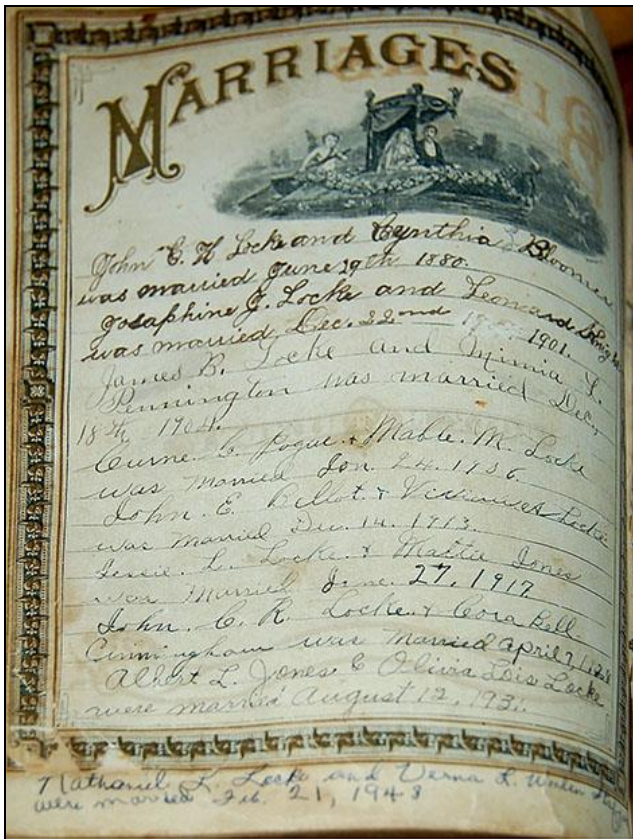 MARRIAGES
John C. H Locke and Cynthia Bloomer
was married June 29th 1880.
Josaphine J. Locke and Leonard
was married Dec. 22nd 1901.
James B. Locke and Minnia L.
Pennington was married Dec,
18th 1904.
C. Pogue + Mable. M. Locke
was Married Jan. 24. 1906.
John. E. +  Locke
was Married Dec. 14. 1913.
Jessie. L. Locke. + Mattie Jones
was Married June. 27, 1917
John. C. R. Locke. + Cora Bell
Cunningham was Married April
Albert L. Jones & Olivia Lois Locke
were married August 12, 193
Nathaniel K. Locke and Verna L.
were married Feb. 21, 1943